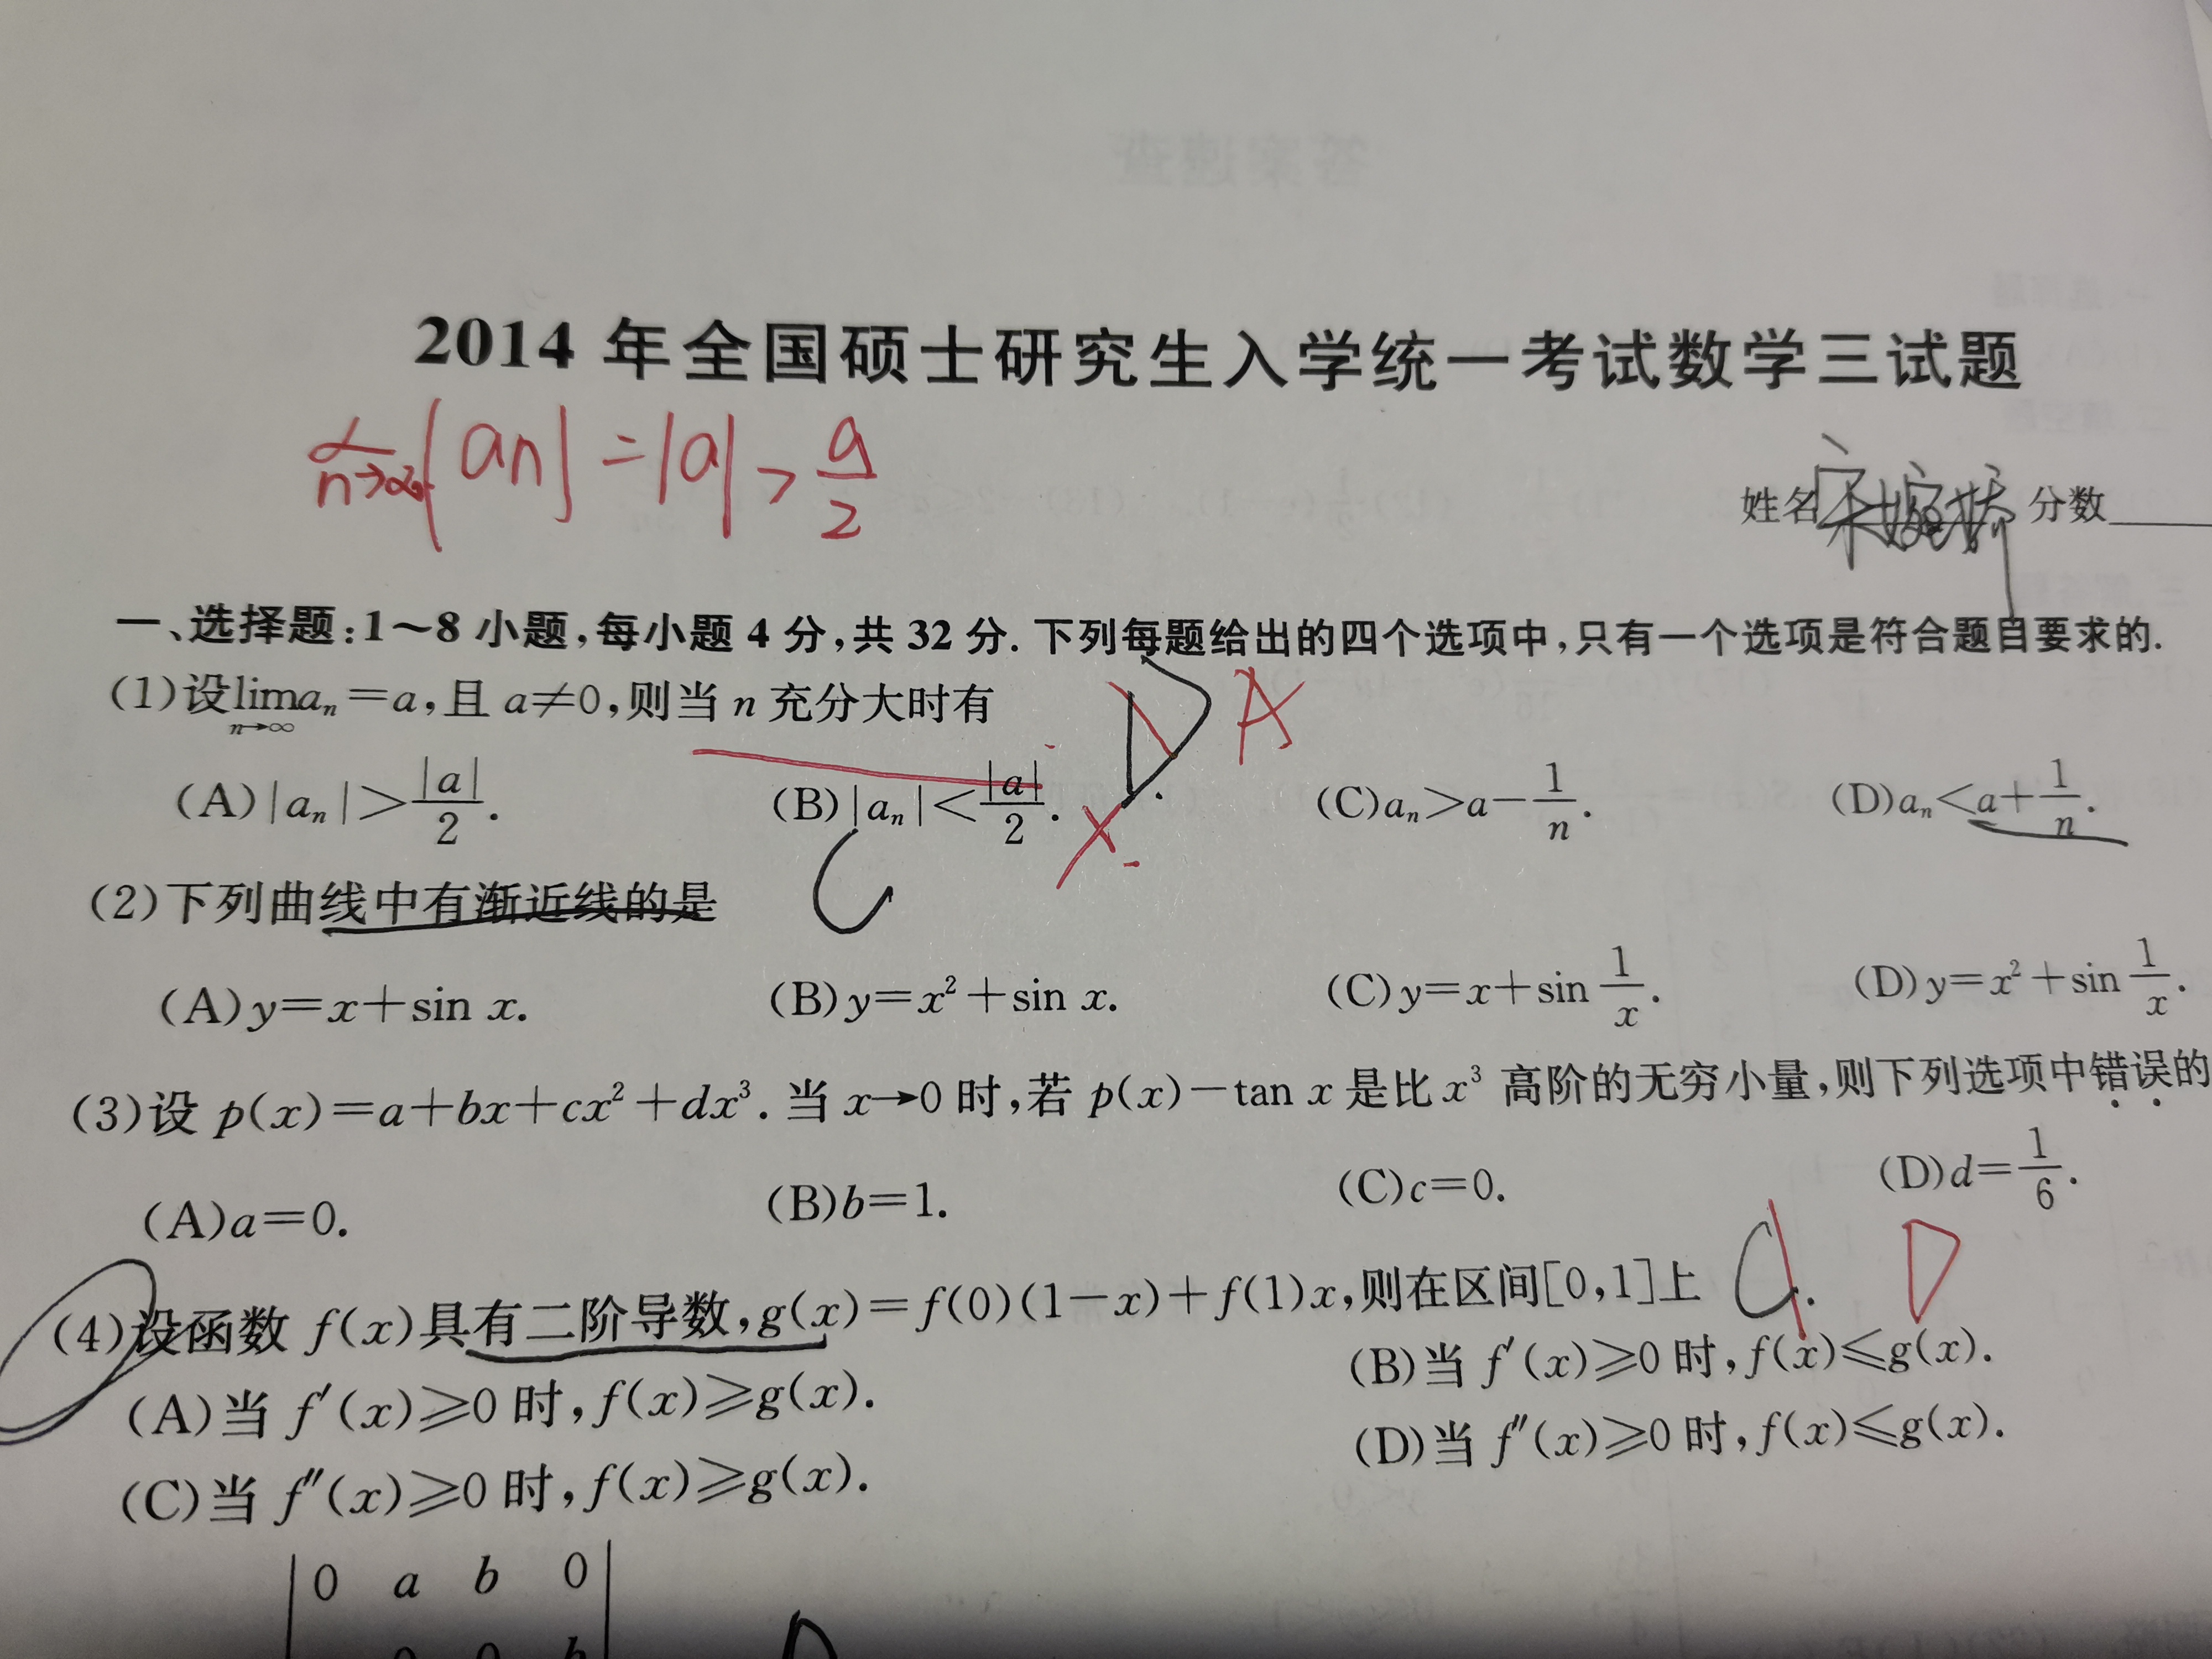 2014年全国硕士研究生入学统一考试数学三试题
lim n→∞ |an| = |a| > a/2
姓名 分数
一、选择题:1～8小题,每小题4分,共32分.下列每题给出的四个选项中,只有一个选项是符合题目要求的.
(1)设lim n→∞ aₙ=a,且a≠0,则当n充分大时有 D A
(A)|aₙ|>|a|/2. (B)|aₙ|<|a|/2. (C)aₙ>a-1/n. (D)aₙ<a+1/n.
(2)下列曲线中有渐近线的是 C
(A)y=x+sin x. (B)y=x²+sin x. (C)y=x+sin 1/x. (D)y=x²+sin 1/x.
(3)设p(x)=a+bx+cx²+dx³.当x→0时,若p(x)-tan x是比x³高阶的无穷小量,则下列选项中错误的
(A)a=0. (B)b=1. (C)c=0. (D)d=1/6.
(4)设函数f(x)具有二阶导数,g(x)=f(0)(1-x)+f(1)x,则在区间[0,1]上 C. D
(A)当f′(x)≥0时,f(x)≥g(x). (B)当f′(x)≥0时,f(x)≤g(x).
(C)当f″(x)≥0时,f(x)≥g(x). (D)当f″(x)≥0时,f(x)≤g(x).
0 a b 0